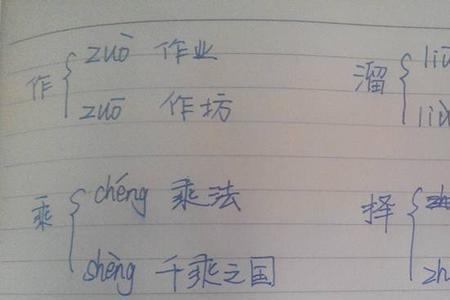 作 zuò 作业
zuō 作坊
溜 liū
liù
乘 chéng 乘法
shèng 千乘之国
择
zh